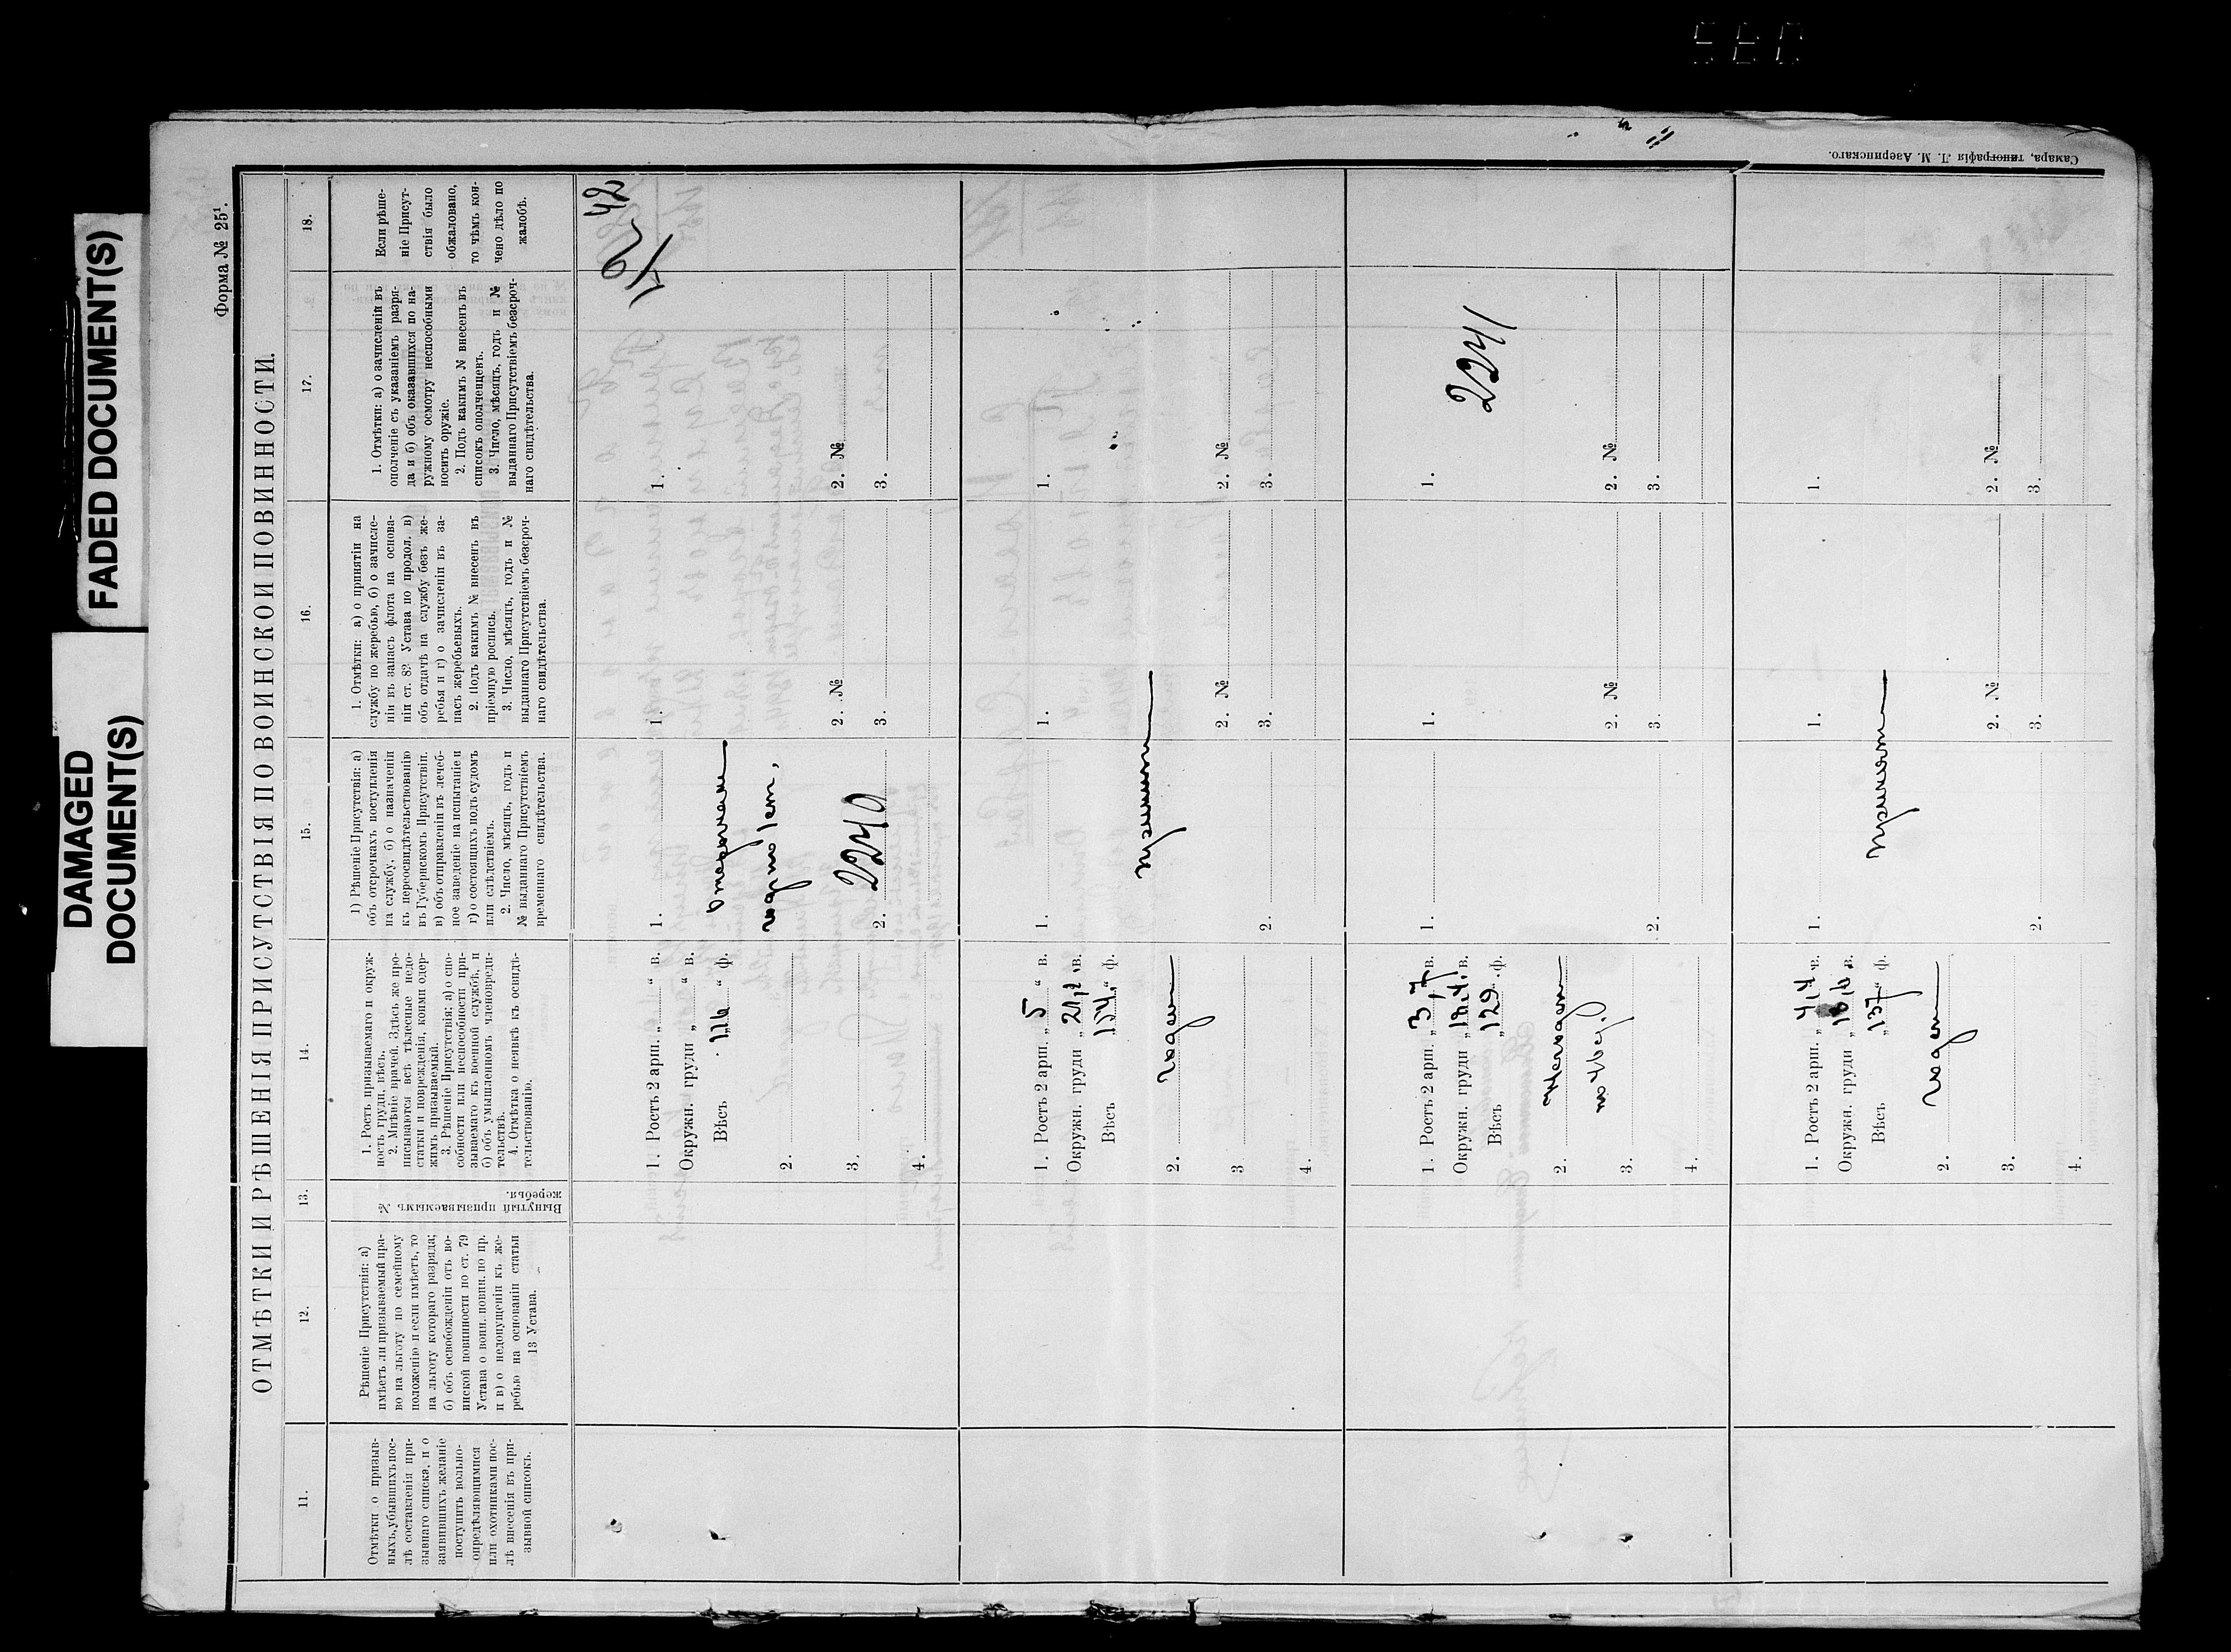 DAMAGED
DOCUMENT(S)
FADED DOCUMENT(S)
Форма № 25¹.
ОТМѢТКИ И РѢШЕНІЯ ПРИСУТСТВІЯ ПО ВОИНСКОЙ ПОВИННОСТИ.
11.
Отмѣтки о призыв-
ныхъ, убывшихъ пос-
лѣ составленія при-
зывнаго списка, и о
заявившихъ желаніе
поступить вольно-
опредѣляющимися
или охотниками пос-
лѣ внесенія въ при-
зывной списокъ.
12.
Рѣшеніе Присутствія: а)
имѣетъ ли призываемый пра-
во на льготу по семейному
положенію и если имѣетъ, то
на льготу котораго разряда;
б) объ освобожденіи отъ во-
инской повинности по ст. 79
Устава о воин. повин. по пр.
и в) о недопущеніи къ же-
ребью на основаніи статьи
13 Устава.
13.
Вынутый призываемымъ №
жеребья.
14.
1. Ростъ призываемаго и окруж-
ность груди, вѣсъ.
2. Мнѣніе врачей. Здѣсь же про-
писываются всѣ тѣлесные недо-
статки и поврежденія, коими одер-
жимъ призываемый.
3. Рѣшеніе Присутствія: а) о спо-
собности или неспособности при-
зываемаго къ военной службѣ, и
б) объ умышленномъ членовреди-
тельствѣ.
4. Отмѣтка о неявкѣ къ освидѣ-
тельствованію.
15.
1) Рѣшеніе Присутствія: а)
объ отсрочкахъ поступленія
на службу, б) о назначеніи
къ переосвидѣтельствованію
въ Губернскомъ Присутствіи.
в) объ отправленіи въ лечеб-
ное заведеніе на испытаніе и
г) о состоящихъ подъ судомъ
или слѣдствіемъ.
2. Число, мѣсяцъ, годъ и
№ выданнаго Присутствіемъ
временнаго свидѣтельства.
16.
1. Отмѣтки: а) о принятіи на
службу по жеребью, б) о зачисле-
ніи въ запасъ флота на основа-
ніи ст. 82 Устава по продол. в)
объ отдачѣ на службу безъ же-
ребья и г) о зачисленіи въ за-
пасъ жеребьевыхъ.
2. Подъ какимъ № внесенъ въ
пріемную роспись.
3. Число, мѣсяцъ, годъ и №
выданнаго Присутствіемъ безсроч-
наго свидѣтельства.
17.
1. Отмѣтки: а) о зачисленіи въ
ополченіе съ указаніемъ разря-
да и б) объ оказавшихся по на-
ружному осмотру неспособными
носить оружіе.
2. Подъ какимъ № внесенъ въ
списокъ ополченцевъ.
3. Число, мѣсяцъ, годъ и №
выданнаго Присутствіемъ безсроч-
наго свидѣтельства.
18.
Если рѣше-
ніе Присут-
ствія было
обжаловано,
то чѣмъ кон-
чено дѣло по
жалобѣ.
42
1. Ростъ 2 арш. „ “ в.
Окружн. груди „ “ в.
Вѣсъ 116 “ ф.
2.
3.
4.
1.
2240
2.
1.
2. №
3.
1.
2. №
3.
1. Ростъ 2 арш. „ 5 “ в.
Окружн. груди „ 21,2 “ в.
Вѣсъ 154 “ ф.
2. годен
3
4.
1.
2.
принят
1.
2. №
3.
1.
2. №
3.
1. Ростъ 2 арш. „ 3,7 в.
Окружн. груди „ в.
Вѣсъ „ 129 ф.
2. Негоден
3.
4.
1.
2.
1.
2. №
3.
1.
2241
2. №
3.
1. Ростъ 2 арш. „ 4,4 “ в.
Окружн. груди „ в.
Вѣсъ „ 137 “ ф.
2. годен
3.
4.
1.
2.
принят
1.
2. №
3.
1.
2. №
3.
Самара, типографія Л. М. Азеринскаго.